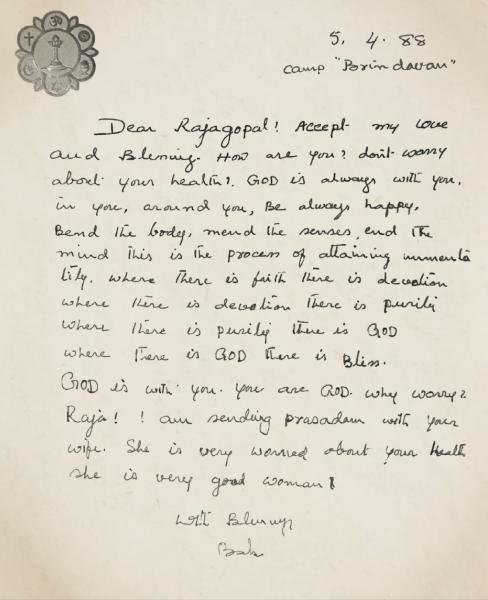 5. 4. 88
camp "Brindavan"
Dear Rajagopal! Accept my love
and Blessing. How are you? don't worry
about your health?. GOD is always with you,
in you, around you, Be always happy.
Bend the body, mend the senses, end the
mind This is the process of attaining immorta
lity. where There is faith There is devotion
where there is devotion There is purity
where there is purity there is GOD
where there is GOD there is Bliss.
GOD is with you. you are GOD. why worry?
Raja! I am sending prasadam with your
wife. She is very worried about your Health
she is very good woman!
with Blessings
Baba